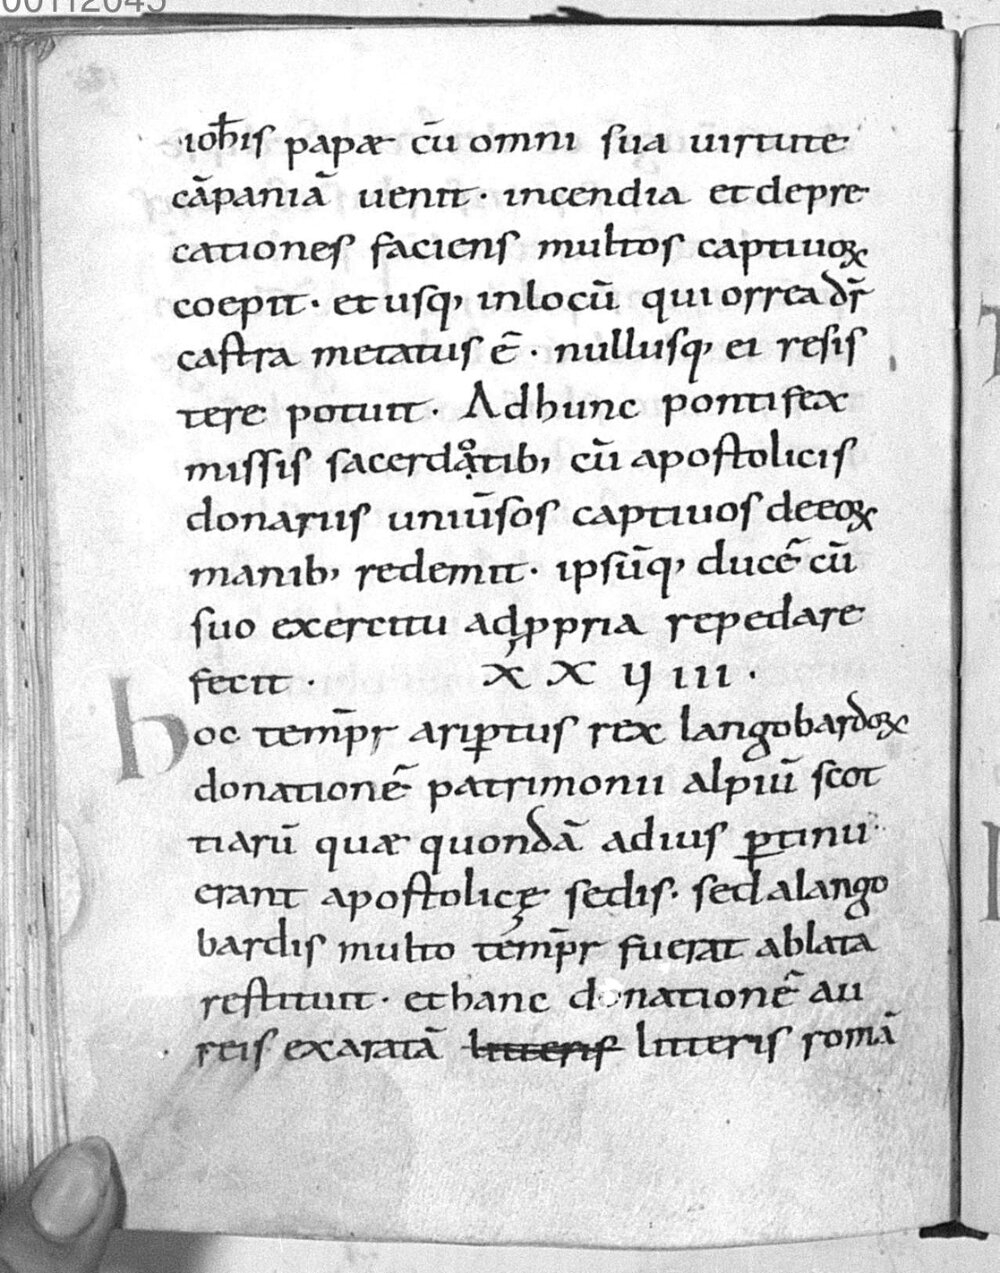 ioħis papæ cū omni sua uirtute
cāpaniā uenit · incendia et depre
cationes faciens multos captiuoꝝ
coepit · et usq; in locū qui orrea dr̄
castra metatus ē · nullusq; ei resis
tere potuit · Ad hunc pontifex
missis sacerdotib; cū apostolicis
donariis uniūsos captiuos de eoꝝ
manib; redemit · ipsūq; ducē cū
suo exercitu ad ꝓpria repedare
fecit · X X V III ·
hoc temp̄r ariꝑtus rex langobardoꝝ
donationē patrimonii alpiū scot
tiarū quæ quondā ad ius ꝑtinu
erant apostolicę sedis · sed a lango
bardis multo temp̄r fuerat ablata
restituit · et hanc donationē au
reis exaratā litteris litteris romā